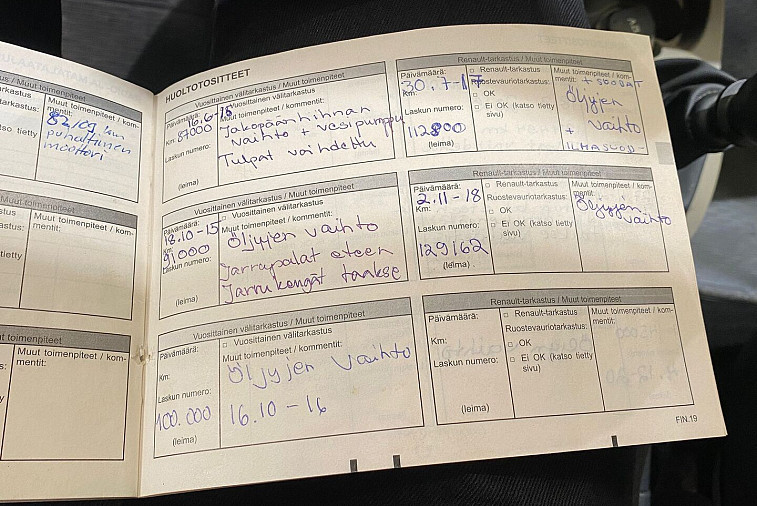 Muut toimenpiteet
Muut toimenpiteet / kom-
mentit:
puhaltimen
moottori
Muut toimenpiteet
Muut toimenpiteet / kom-
mentit:
toimenpiteet
Muut toimenpiteet / kom-
mentit:
HUOLTOTOSITTEET
Vuosittainen välitarkastus / Muut toimenpiteet
Päivämäärä:
16.6-15
Vuosittainen välitarkastus
Muut toimenpiteet / kommentit:
Km:
87000
Laskun numero:
Jakopäänhihnan
vaihto + vesipumppu
Tulpat vaihdettu
(leima)
Vuosittainen välitarkastus / Muut toimenpiteet
Päivämäärä:
18.10-15
Vuosittainen välitarkastus
Muut toimenpiteet / kommentit:
Km:
91000
Laskun numero:
Öljyjen vaihto
Jarrupalat eteen
Jarrukengät taakse
(leima)
Vuosittainen välitarkastus / Muut toimenpiteet
Päivämäärä:
Vuosittainen välitarkastus
Muut toimenpiteet / kommentit:
Km:
Öljyjen vaihto
Laskun numero:
100.000
16.10-16
(leima)
Renault-tarkastus / Muut toimenpiteet
Päivämäärä:
30.7-17
Km:
Laskun numero:
112800
(leima)
Renault-tarkastus
Ruostevauriotarkastus:
OK
Ei OK (katso tietty
sivu)
Muut toimenpiteet / kom-
mentit:
Öljyjen
vaihto
+
ILMASUOD-
Renault-tarkastus / Muut toimenpiteet
Päivämäärä:
2.11-18
Km:
Laskun numero:
129162
(leima)
Renault-tarkastus
Ruostevauriotarkastus:
OK
Ei OK (katso tietty
sivu)
Muut toimenpiteet / kom-
mentit:
Öljyjen
vaihto
Renault-tarkastus / Muut toimenpiteet
Päivämäärä:
Km:
Laskun numero:
(leima)
Renault-tarkastus
Ruostevauriotarkastus:
OK
Ei OK (katso tietty
sivu)
Muut toimenpiteet / kom-
mentit:
FIN.19